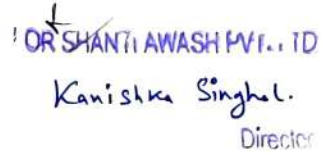 OR SHANTI AWASH PVT.. TD
Kanishka Singhal.
Director